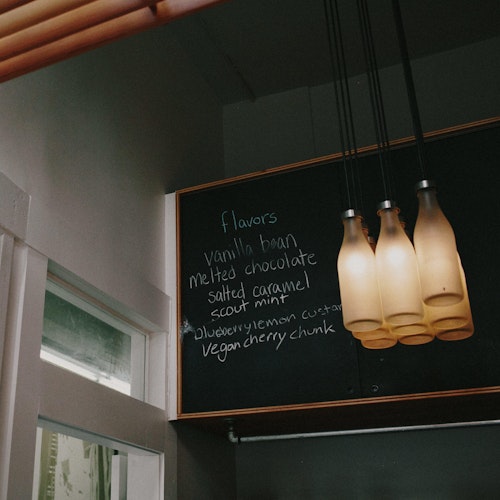 flavors
vanilla bean
melted chocolate
salted caramel
scout mint
blueberry lemon custa
vegan cherry chunk